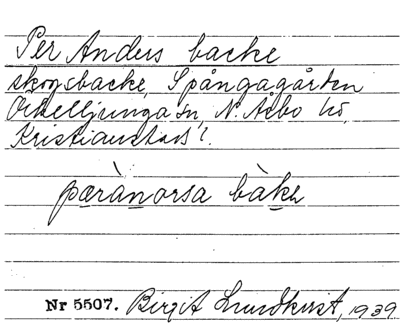 Per Anders backe
skogsbacke, Spångagården
Örkelljunga sn, N. Åsbo hd,
Kristianstads l.
pærànorsa bàke
Nr 5507. Birgit Lundkvist, 1939